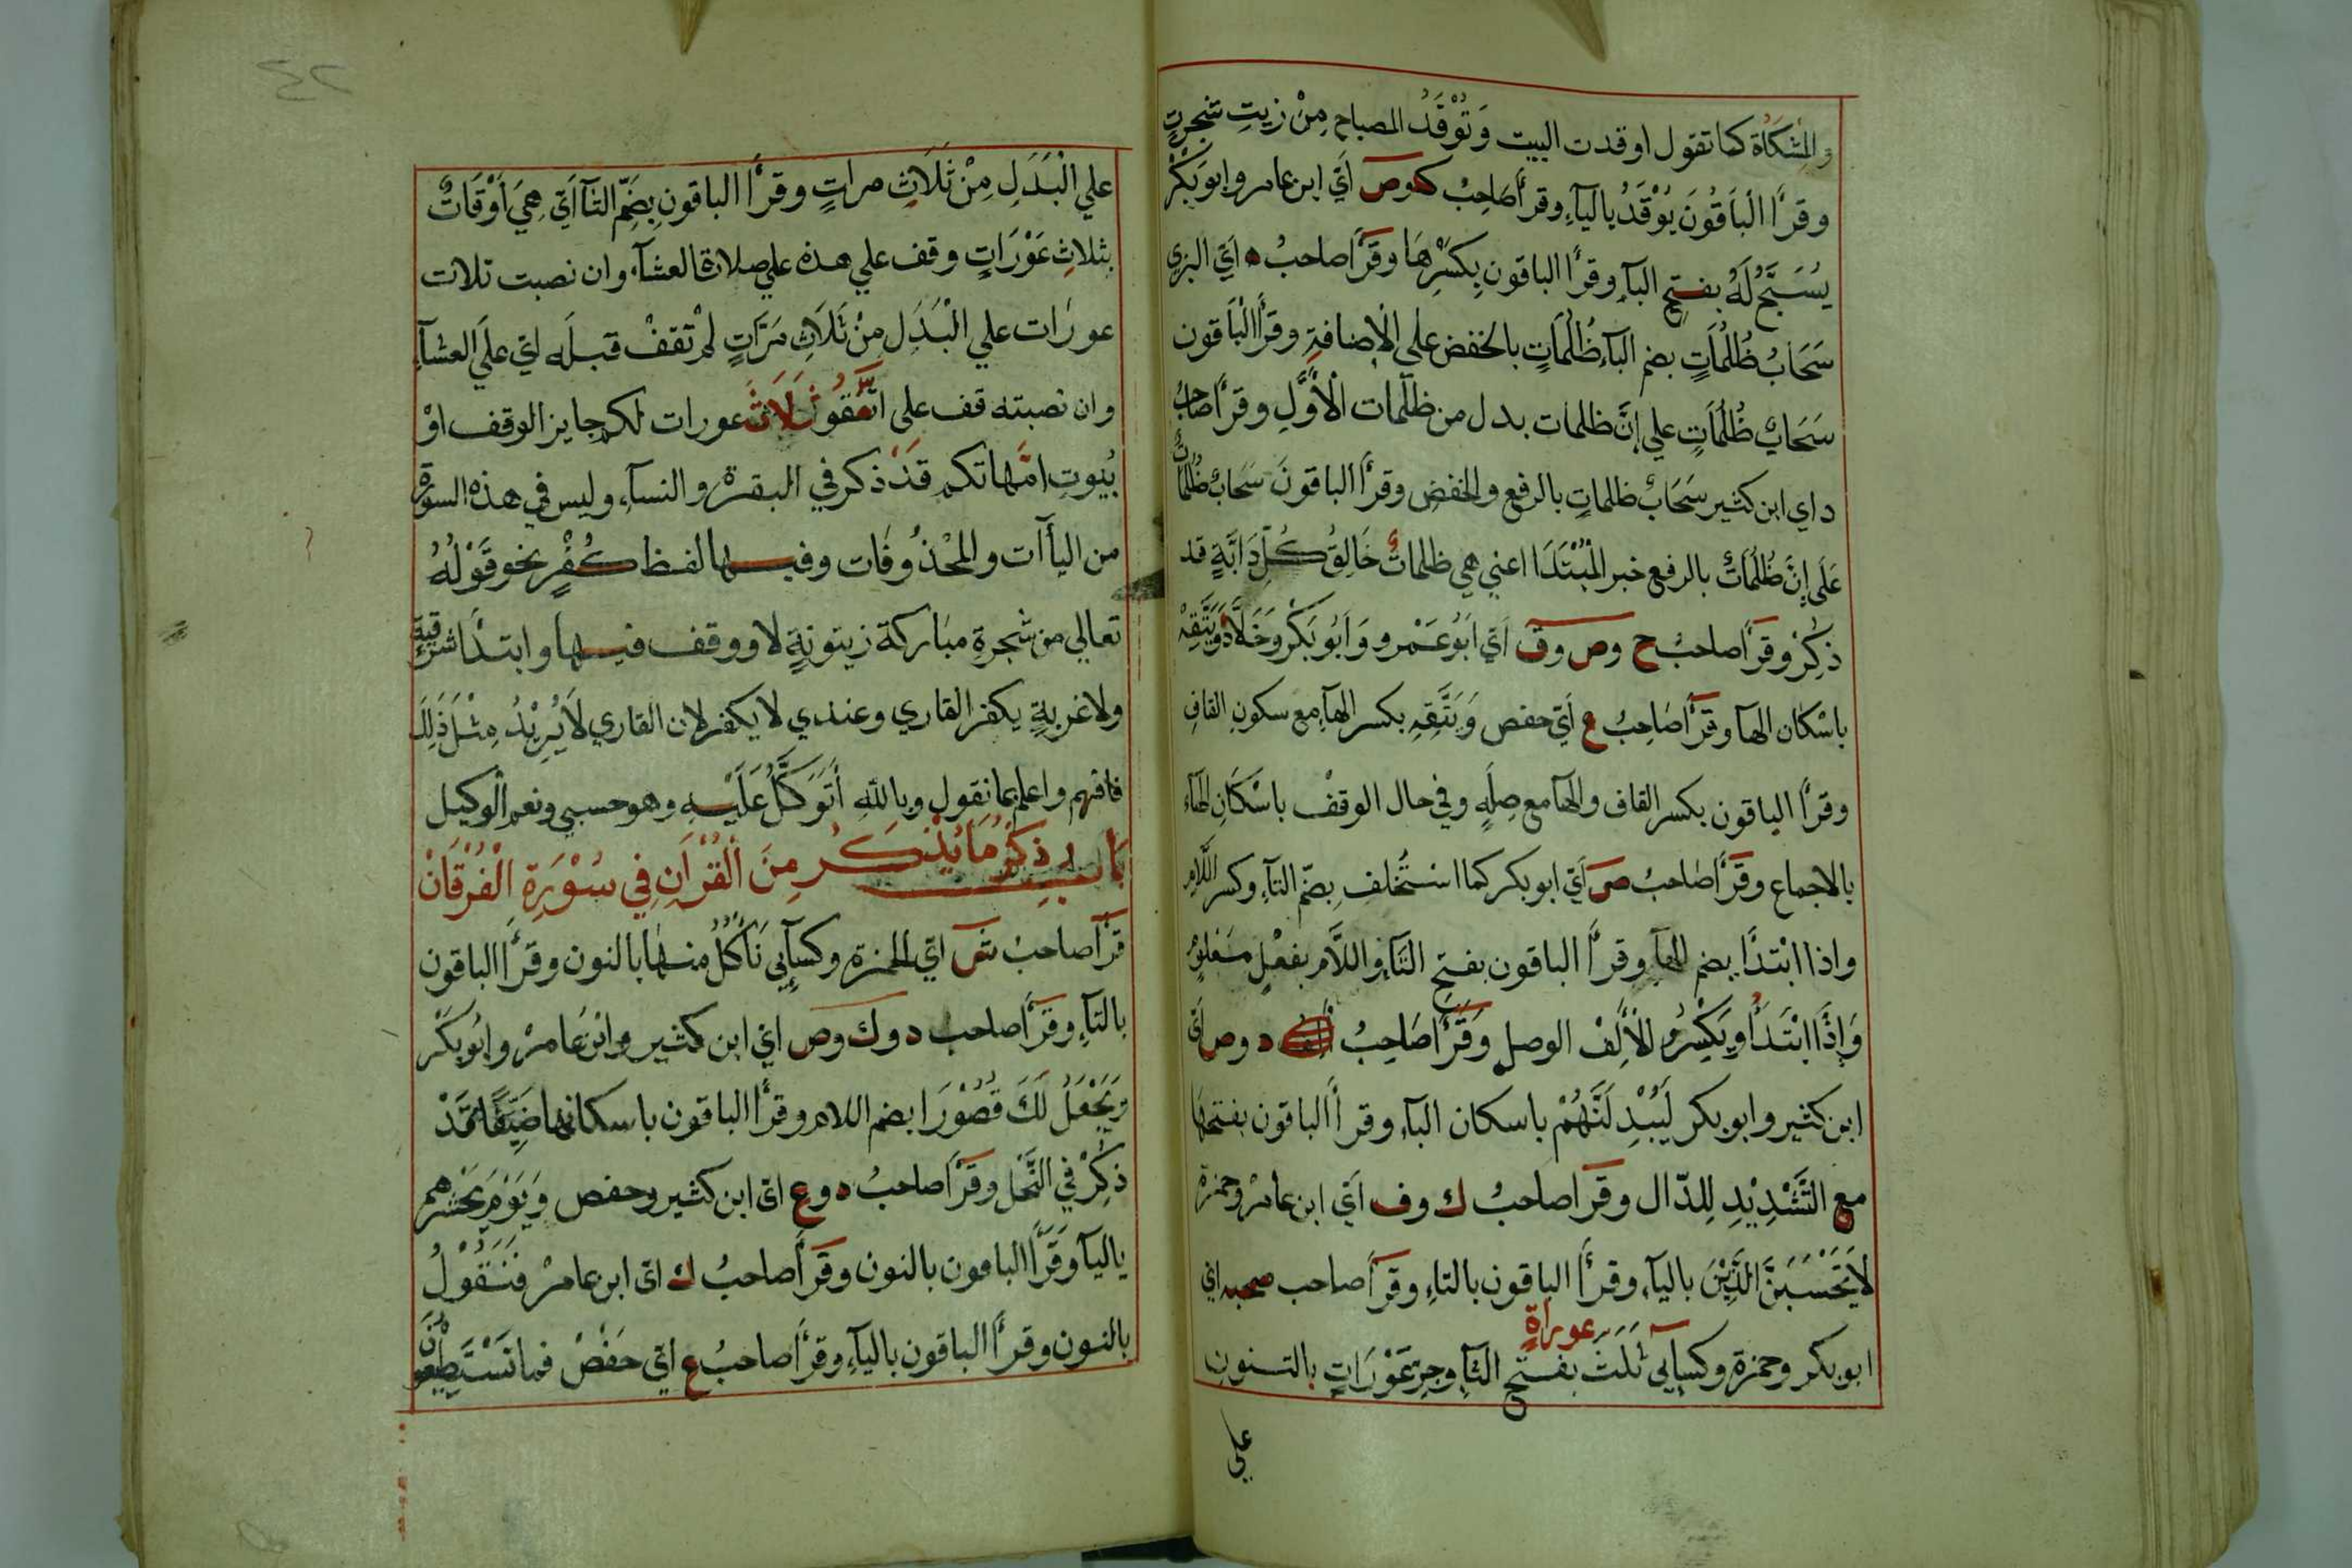 والمشكاة كما تقول اوقدت البيت وَتُوْقَدُ المصباح مِنْ زيتِ شجرتٍ
وقرأ الْبَاقُونَ يُوْقَدُ باليآء وقرأ صَاحِبُ ك وص اَيْ ابن عامر وابو بَكْرْ
يُسَبَّحُ لَهُ بفتح البآء وقرأ الباقون بِكَسْرِهَا وقَرَأَ صاحبُ ه اَيْ البزي
سَحَابُ ظُلُمَاتٍ بضم البآء ظُلُمَاتٍ بالخفض على الْاِضافةِ وقرَأَ الْبَاقون
سَحَابٌ ظُلُمَاتٍ علي اِنَّ ظلمات بدل من ظلمات الْاَوَّلِ وقرَأَ صاحبُ
د اي ابن كثير سَحَابٌ ظلماتٍ بالرفعِ والخفضِ وقرأ الباقونَ سَحَابٌ ظُلُمَاتٌ
عَلَى اِنَّ ظُلُمَاتٌ بالرفع خبر الْمُبْتَدَا اعني هي ظلماتٌ خَالِقُ كُلِّ دَابَّةٍ قد
ذُكِرْ وقَرَأَ صاحبُ ح وص وق اَيْ اَبُو عَمْرو وَاَبُو بَكْرْ وَخَلَّادْ وَيَتَّقِهْ
باسْكان الهآ وقَرَأَ صَاحِبُ ع اَيْ حفص وَيَتَّقِهِ بكسر الهآء مع سكونِ القافِ
وقرأ الباقون بكسر القاف والهآ مع صِلَةٍ وفي حال الوقفْ باسْكَانِ الهآء
بالاجماع وقَرَأَ صَاحبُ ص اَيْ ابو بكر كما استُخلف بِضم التآء وكسر اللَّامِ
واذا ابْتَدَأَ بضم الهآء وقرأ الباقون بفتح التَآء واللَّام بفعْلٍ معلومٍ
وَاِذَا ابْتَدَأَ وَيَكْسِرُ لْاَلِفْ الوصلِ وَقَرَأَ صَاحِبُ د وص اَيْ
ابن كثير وابو بكر لَيُبْدِلَنَّهُمْ باسكان البآء وقرأ الباقون بفتحهَا
مع التَّشْدِيْدِ لِلدّال وقَرَأَ صاحبُ ك وف اَيْ ابن عامرْ وحمزة
لَا يَحْسَبَنَّ الَّذِيْنَ باليآء وقرأ الباقون بالتاءِ وقَرَأَ صاحب صحبه اي
عوراةٍ
ابو بكر وحمزة وكسآيي ثَلَثَ بفتح الثآء وجر عَوْرَاتٍ بالتنونِ
علي
علي الْبَدَلِ مِنْ ثَلَاثِ مراتٍ وقرأ الباقون بِضَمِّ الثآء اَيْ هِيَ اَوْقَاتٌ
بثلاثِ عَوْرَاتٍ وقف علي هذه علي صلاة العشآء وان نصبت ثلاث
عورَات علي الْبَدَلِ مِنْ ثَلَاثِ مَرَّاتٍ لَمْ تقفْ قبلَه اي علَي العشآء
وان نصبته قف على اتَّقُوْ ثَلَاثَ عورات لكم جايز الوقف اوْ
بُيوتِ امَّهاتكم قَدْ ذكر في البقرة والنسآء وليس في هذه السورة
من اليأآت والمحْذُوفات وفيها لفظ كُفْرٍ نحو قَوْلُهُ
تعالي من شجرةٍ مبَاركة زيتونةٍ لا ووقف فيها وابتدأ شرقيةٍ
ولا غربيةٍ يكفر القاري وعندي لا يكفر لان القاري لَا يُرِيْدُ مِثْلَ ذَلِكَ
فافهم واعلم بما نقول وبالله اَتَوَكَّلُ عَلَيْهِ وهو حسبي ونعم الْوكيل
بَاب ذِكْرُ مَا يُذْكَرُ مِنَ الْقُرْاَنِ فِي سُوْرَةِ الْفُرْقَانْ
قَرَأَ صاحبُ ش اَيْ الحمزة وكسآيي نَأْكُلُ منها بالنون وقرَأ الباقون
بالتآء وقَرَأَ صاحب د وك وص اي ابن كثير وابْن عَامرْ وابُو بكَرْ
وَيَجْعَلُ لَكَ قُصُوْرَا بضم اللام وقرأ الباقون باسكانها ضَيِّقًا قَدْ
ذُكِرْ في النَّحل وقَرَأَ صاحبُ د وع اي ابن كثير وحفص وَيَوْمَ يَحْشرهم
باليآ وَقَرَأَ الباقون بالنون وقَرَأَ صاحبُ ك اي ابن عامرْ فَنَقُوْلُ
بالنون وقرأ الباقون باليآء وقَرَأَ صاحبُ ع اَيْ حَفْصْ فما تَسْتَطِيْعُوْنَ